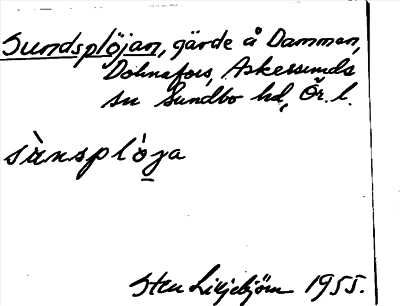 Sundsplöjan, gärde å Dammen,
Dohnafors, Askersunds
sn Sundbo hd, Ör. l.
sùnsplò̱ja
Sten Liljebjörn 1955.